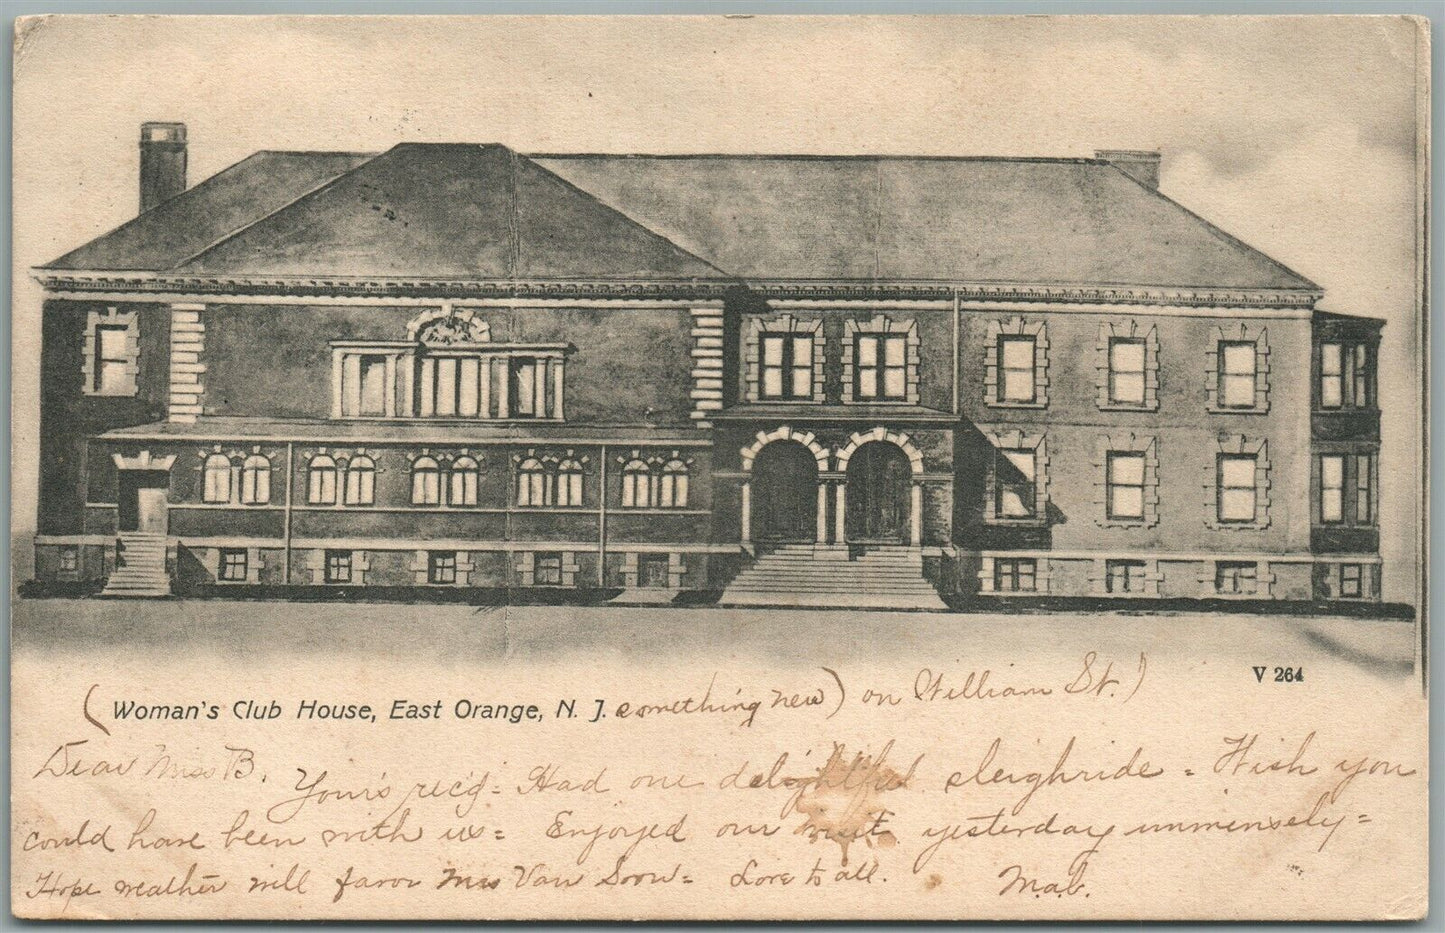 V 264
(Woman's Club House, East Orange, N. J. something new) on William St.)
Dear Miss B. Your's rec'd = Had one delightful sleighride = Wish you
could have been with us = Enjoyed our visit yesterday immensely =
Hope weather will favor Mrs Van = Love to all. M.a.b.